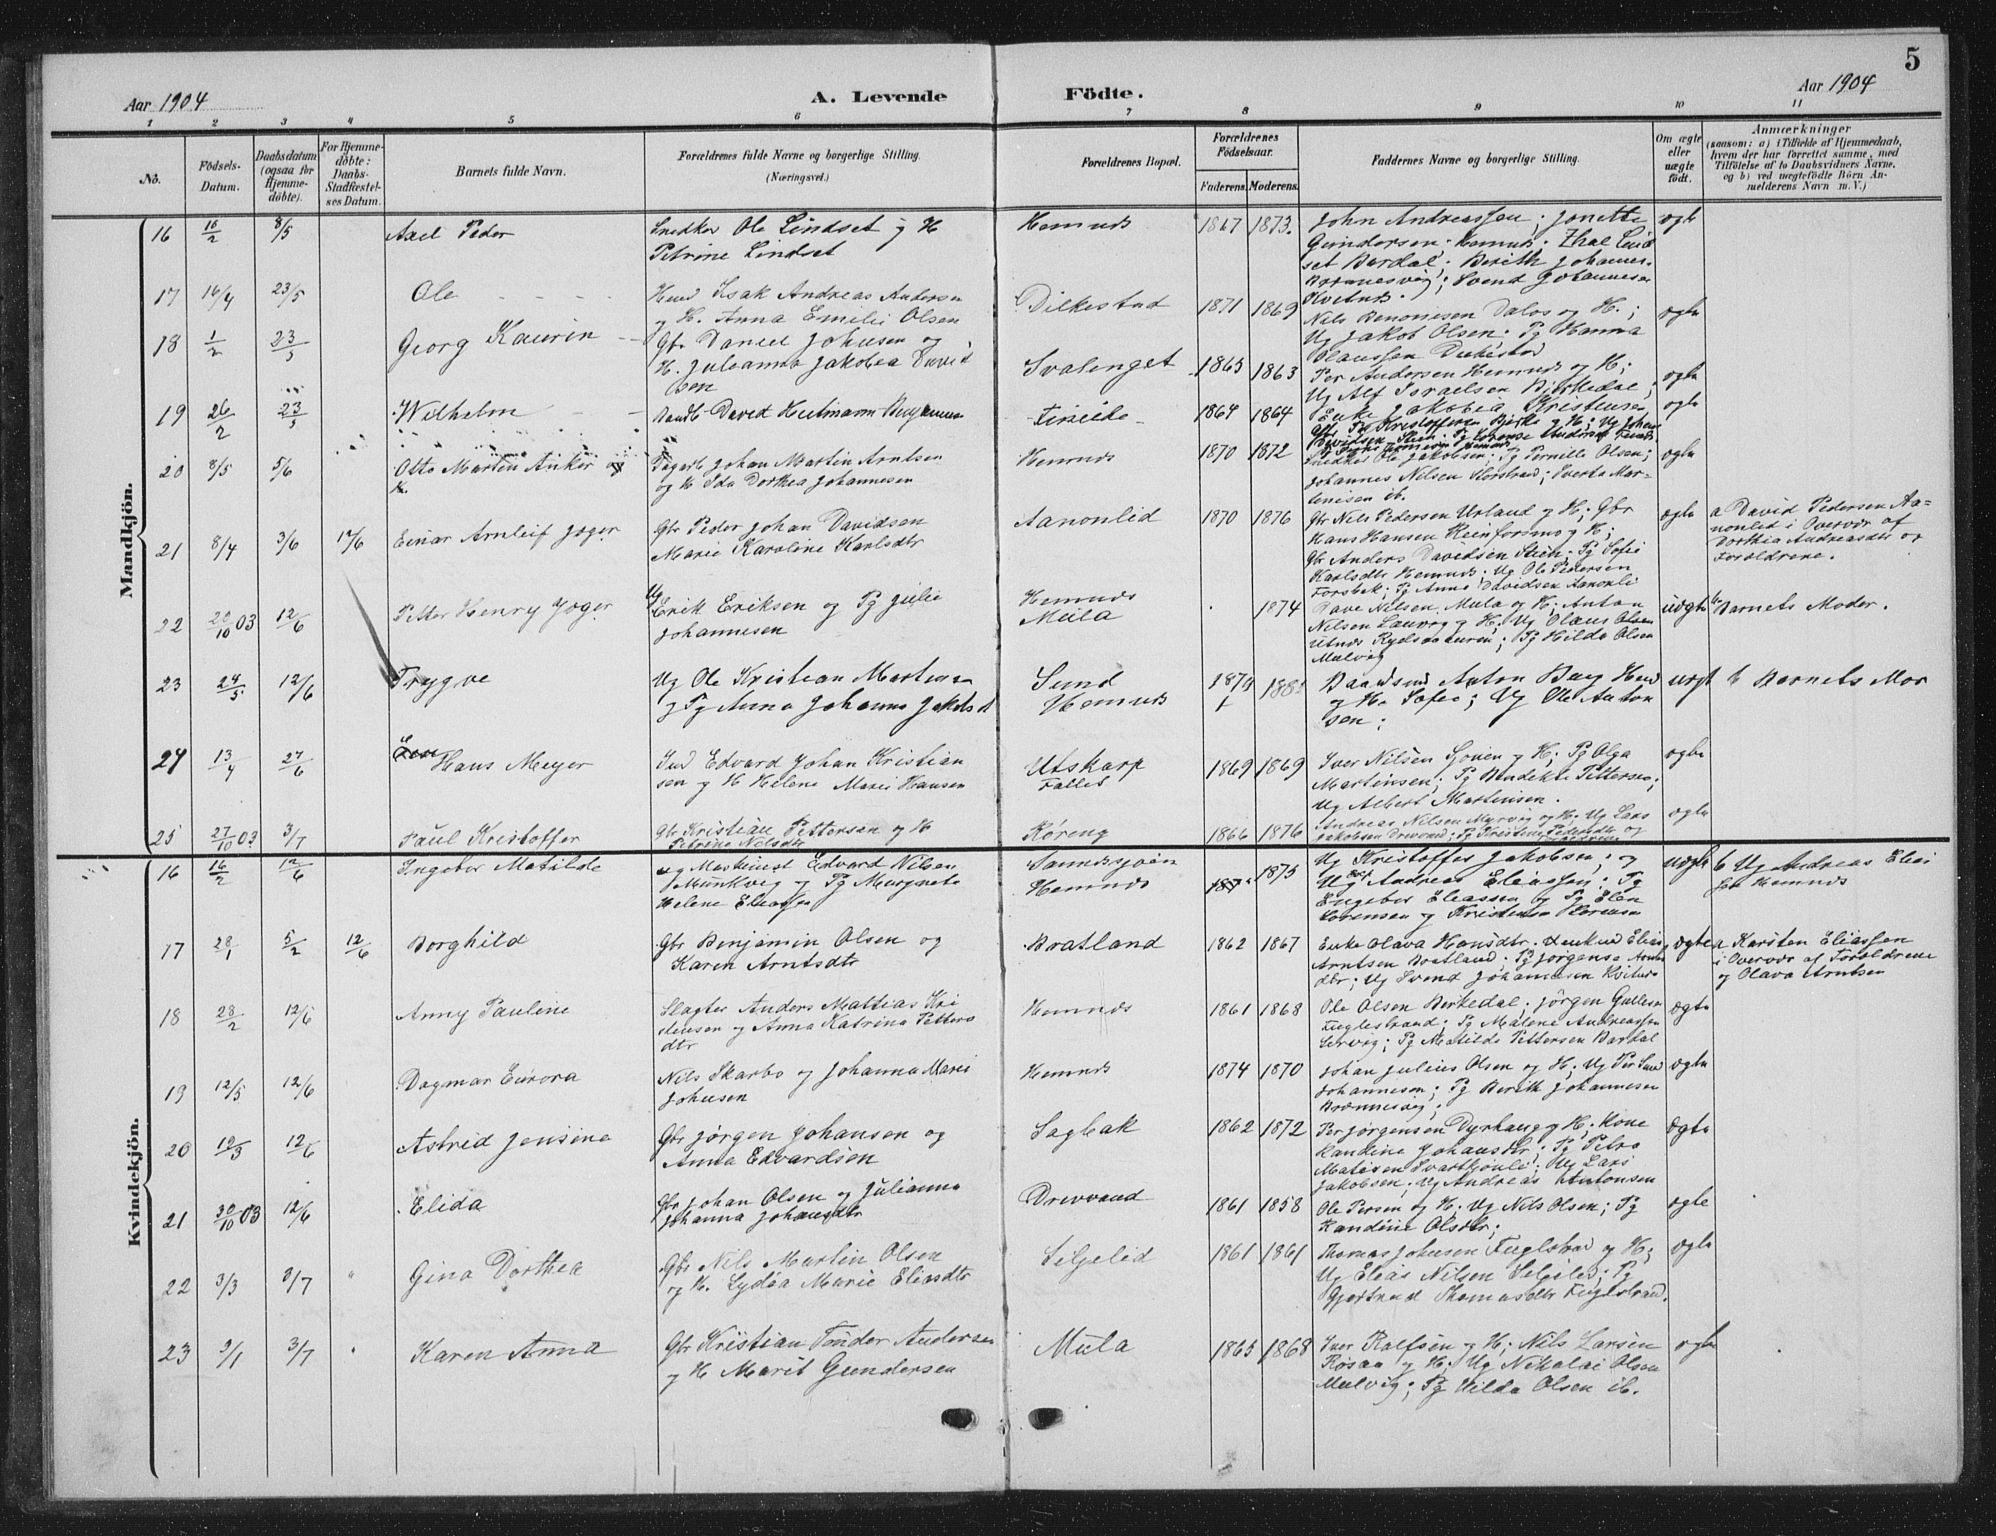 5
Aar 1904
A. Levende
Födte.
Aar 1904
1 2 3 4 5 6 7 8 9 10 11
No.
Födsels-
Datum.
Daabsdatum
(ogsaa for
Hjemme-
döbte).
For Hjemme-
döbte:
Daabs-
Stadfæstel-
ses Datum.
Barnets fulde Navn.
Forældrenes fulde Navne og borgerlige Stilling.
(Næringsvei.)
Forældrenes Bopæl.
Forældrenes
Födselsaar.
Faderens. Moderens.
Faddernes Navne og borgerlige Stilling.
Om ægte
eller
uægte
födt.
Anmærkninger
(saasom: a) i Tilfælde af Hjemmedaab,
hvem der har forrettet samme, med
Tilföielse af to Daabsvidners Navne,
og b) ved uægtefödte Börn An-
melderens Navn m. V.)
Mandkjön.
16 16/2 8/5 Axel Peder
Snedker Ole Lindset og H
Petrine Lindset
Hemnes 1867 1873.
John Andreassen; Jonette
Gundersen; Hemnes;
set Bardal; Berith Johannes-
Brænnesvig; Svend Johannesen
ægte
17 16/4 23/5 Ole
Isak Andreas Andersen
og H. Anna Emelie Olsen
Dilkestad 1871 1869
Nils Benonisen Dalos og H.;
Ug Jakob Olsen; Pg Hanna
Olaussen
ægte
18 1/2 23/5 Georg Kaurin
Gbr Daniel Johnsen og
H. Juleanna Jakobea David
sen
Svalenget 1865 1863
Per Andersen Hemnes og H;
Ug Alf Israelsen Bjerkedal;
Enke Jakobia Kristensen
ægte
19 26/2 23/5 Wilhelm
David
Fineide 1864 1864
ægte
20 8/5 5/6 Otto Martin Anker
Johan Martin Arntsen
og H Ida Dorthea Johannesen
Hemnes 1870 1872
Snedker Ole Jakobsen; Pg Pernille Olsen;
Johannes Nilsen Storstrand; Sverta Mar-
tenisen ib.
ægte
21 8/4 3/6 12/6 Einar Arnleif Jøger
Gbr Peder Johan Davidsen
Marie Karoline Karlsdtr
Aanonlid 1870 1876
Gbr Nils Pedersen Urland og H; Gbr
Hans Hansen Reinforsmo og H;
Gbr Anders Davidsen Stien; Pg Sofie
Karlsdtr Hemnes; Ug Ole Pedersen
Forsbak; Pg Anna Davidsen Aanonli
ægte
a David Pedersen Aa-
nonlid i Overvær af
Dorthia Andreasdtr og
Forældrene.
22 20/10 03 12/6 Petter Henry Jøger
Ug
Erik Eriksen og Pg Julie
Johannesen
Hemnes
Mula
1874
Dave Nilsen Mula og H; Anton
Nilsen Lauvog og H; Ug Olaus Olsen
Utnes; Pg Hilda Olsen
Mulvig
uægte
b Barnets Moder.
23 24/5 12/6 Trygve
Ug Ole Kristian Martens
og Pg Anna Johanna Jakobsd
Sund
Hemnes
Anton Berg Hemnes
og H. Sofie; Ug Ole Anton
sen;
uægt
b Barnets Mor
24 13/4 27/6 Hans Meyer
Ind Edvard Johan Kristian
sen og H Helene Marie Hansen
Utskarp
Fallet
1869 1869
Iver Nilsen Sjoven og H; Pg Olga
Martinsen; Pg Bendekte Pettersen;
Ug Albert Martinsen.
ægte
25 27/10 03 3/7 Paul Kristoffer
Gbr Kristian Pettersen og H
Petrine Nilsdtr
Røreng 1866 1876
Andreas Nilsen Myrvig og H; Ug Lars
Jakobsen Drevvand; Pg Kristine Pedersdtr og
Ug Kristoffer Jakobsen;
ægte
Kvindekjön.
16 16/2 12/6 Ingebor Matilde
Maskinist Edvard Nilsen
Munkvig og Pg Margrete
Helene Eliassen
Hemnes
1875
Ug Andreas Eliassen; Pg
Engebor Eliassen og Pg Elen
Sorensen og Kristensen Sorensen
uægte
b Ug Andreas Elias
sen Hemnes
17 28/1 5/2 12/6 Borghild
Gbr Benjamin Olsen og
Karen Arntsdtr
Bratland 1862 1867
Enke Olava Hansdtr; Elias
Arntsen Bratland; Pg Jørgense Arnts
dtr; Ug Svend Johannesen Kvitnes
ægte
a Karsten Eliassen
i Overvær af Forældrene
og Olava Arntsen
18 28/2 12/6 Anny Pauline
Slagter Anders Mattias Kri
stensen og Anna Katrina Petters
dtr
Hemnes 1861 1868
Ole Olsen Birkedal; Jørgen Gullesen
Fuglestrand; Pg Malene Andreassen
Sørvig; Pg Matilde Pettersen Bardal
ægte
19 12/5 12/6 Dagmar Eurora
Nils Skarbo og Johanna Marie
Johnsen
Hemnes 1874 1870
Johan Julius Olsen og H; Ug Per Lund
Johannesen; Pg Berith Johannesen
Brænnesvig;
ægte
20 19/3 12/6 Astrid Jensine
Gbr Jørgen Johansen og
Anna Edvardsen
Sagbak 1862 1872
Per Jørgensen Dyrhaug og H; Kone
Handine Johansdtr; Pg Petra
Matisen Svarttjønli; Ug Lars
Jakobsen; Ug Andreas Antonsen
ægte
21 30/10 03 12/6 Elida
Gbr Johan Olsen og Julianna
Johanna Johansdtr
Drevvand 1861 1858
Ole Persen og H; Ug Nils Olsen; Pg
Handine Olsdtr;
ægte
22 3/3 3/7 " Gina Dorthea
Gbr Nils Martin Olsen
og H. Lydia Marie Eliasdtr
Seljelid 1861 1861
Thomas Johnsen Fuglstrad og H;
Ug Elias Nilsen Seljelid; Pg
Gjertrud Thomasdtr Fuglstrand.
ægte
23 9/1 3/7 " Karen Anna
Gbr Kristian Tønder Andersen
og H Marit Gundersen
Mula 1865 1868
Iver Rolfsen og H; Nils Larsen
Røsaa og H; Ug Nikolai Olsen
Mulvig; Pg Hilda Olsen ib.
ægte